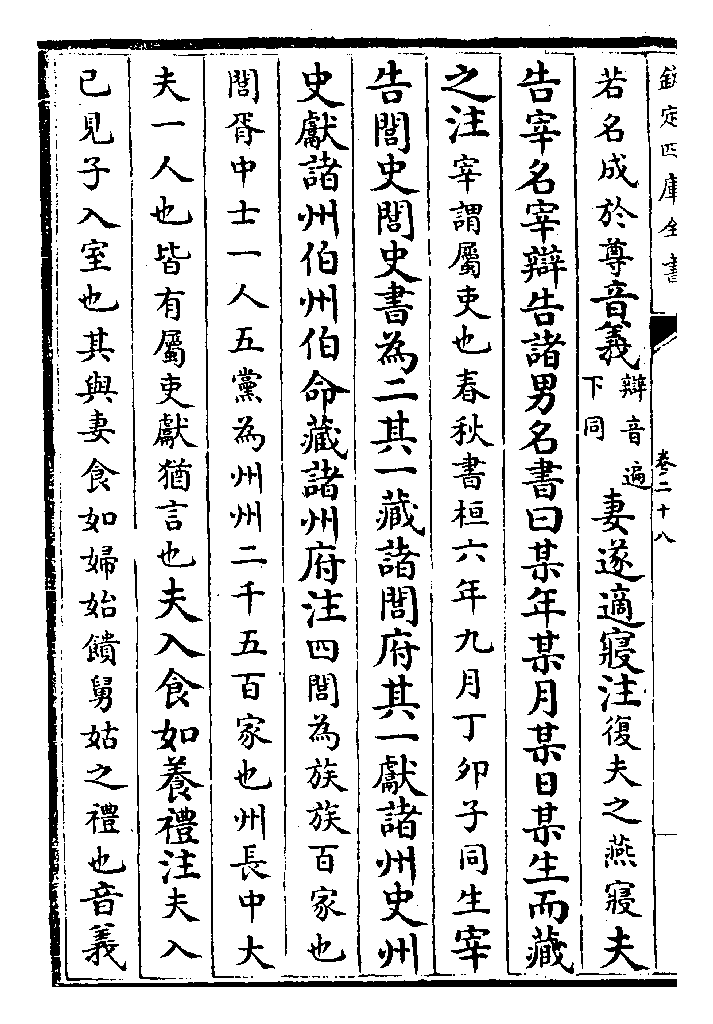 欽定四庫全書
卷二十八
若名成於尊音義辯音遍下同妻遂適寢注復夫之燕寢夫
告宰名宰辯告諸男名書曰某年某月某日某生而藏
之注宰謂屬吏也春秋書桓六年九月丁卯子同生宰
告閭史閭史書為二其一藏諸閭府其一獻諸州史州
史獻諸州伯州伯命藏諸州府注四閭為族族百家也
閭胥中士一人五黨為州州二千五百家也州長中大
夫一人也皆有屬吏獻猶言也夫入食如養禮注夫入
已見子入室也其與妻食如婦始饋舅姑之禮也音義